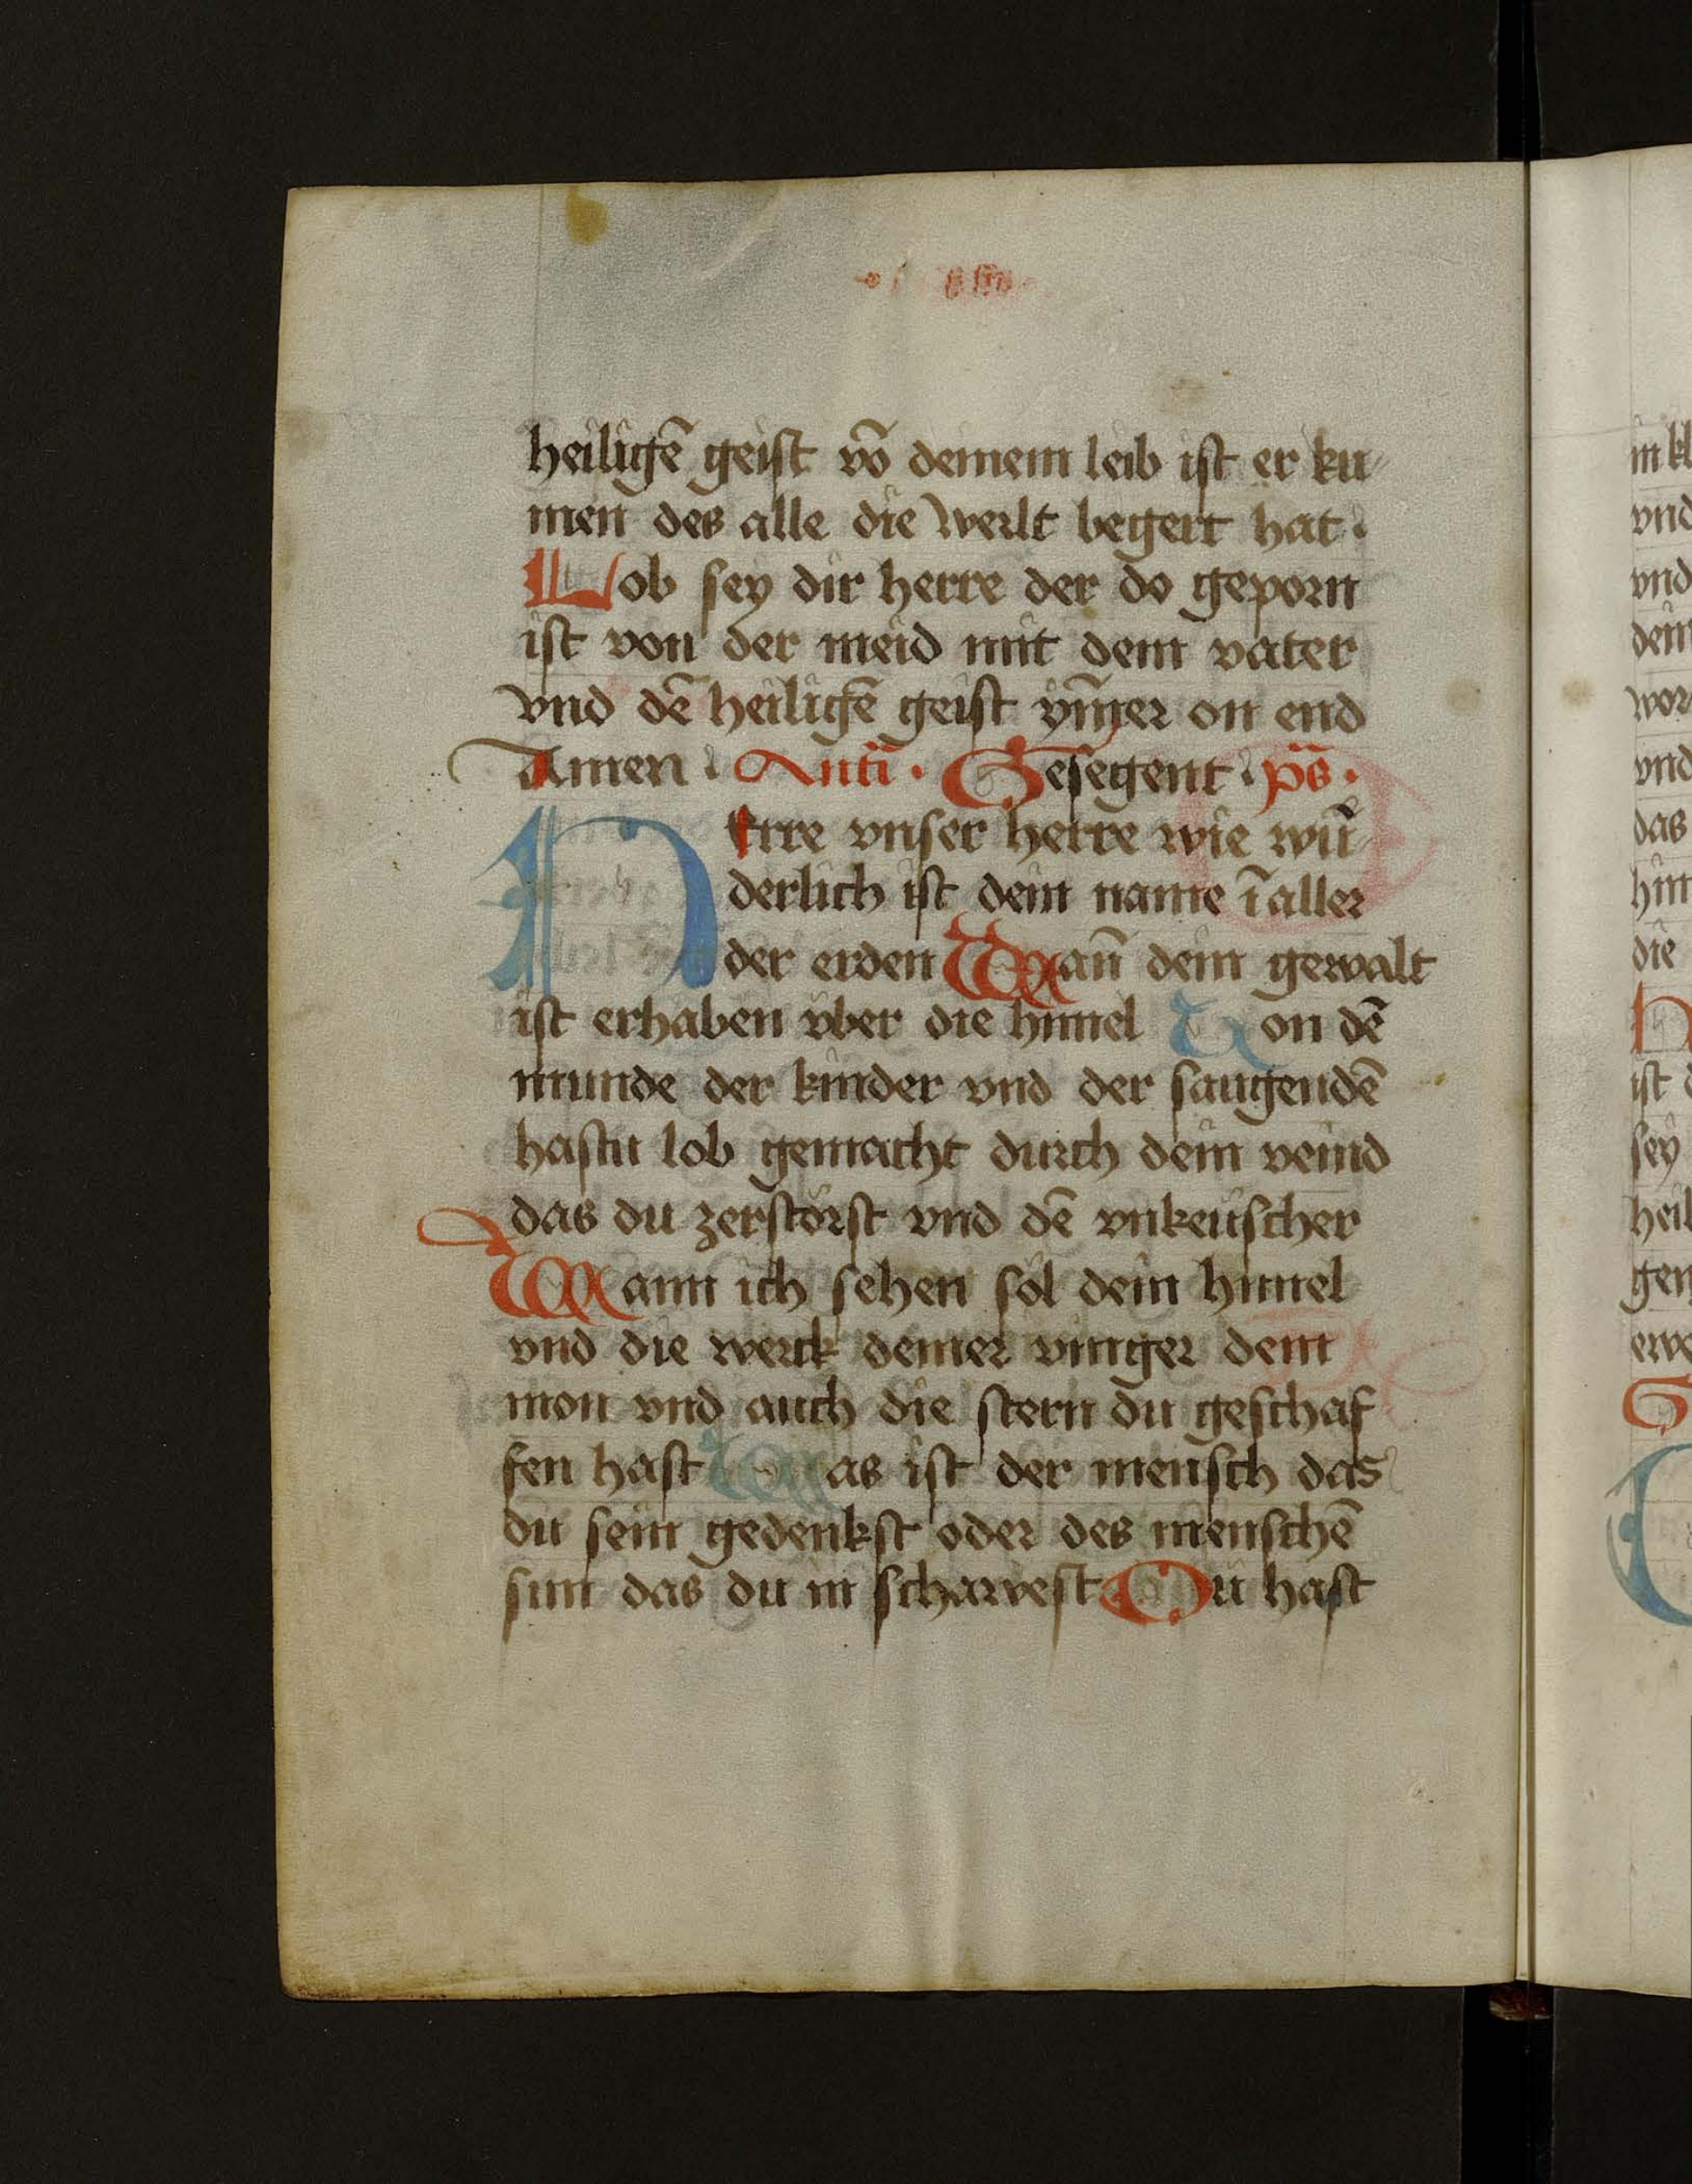 heiligē geist vō deinem leib ist er ku
men des alle die werlt begert hat.
Lob sey dir herre der do geporn
ist von der meid mit dem vater
vnd dē heiligē geist ym̄er on end
Amen. Anti. Gesegent. ps.
HErre vnser herre wie wū
derlich ist dein name ī aller
der erden Wan̄ dein gewalt
ist erhaben vber die himel Von dē
munde der kinder vnd der saugendē
hastu lob gemacht durch dein veind
das du zerstörst vnd dē vnkeüscher
Wann ich sehen sol dein himel
vnd die werck deiner vinger dem
mon vnd auch die stern du geschaf
fen hast Was ist der mensch das
du sein gedenkst oder des menschē
sun das du in schawest Du hast